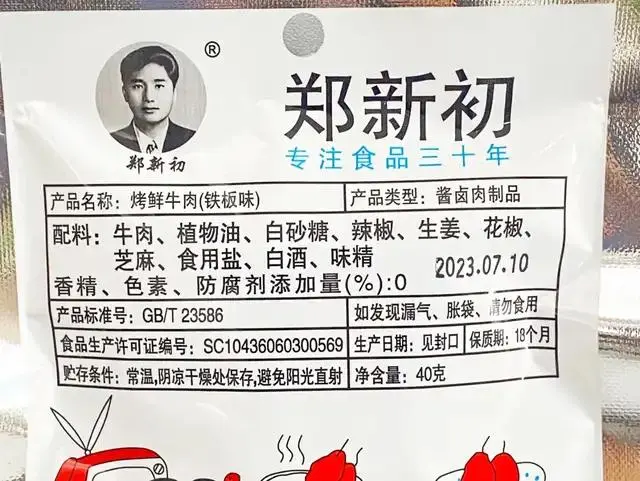 ®
郑新初
郑新初
专注食品三十年
产品名称: 烤鲜牛肉(铁板味)
产品类型: 酱卤肉制品
配料: 牛肉、植物油、白砂糖、辣椒、生姜、花椒、
芝麻、食用盐、白酒、味精
2023.07.10
香精、色素、防腐剂添加量(%):0
产品标准号: GB/T 23586
如发现漏气、胀袋、请勿食用
食品生产许可证编号: SC10436060300569
生产日期: 见封口
保质期: 18个月
贮存条件: 常温,阴凉干燥处保存,避免阳光直射
净含量: 40克